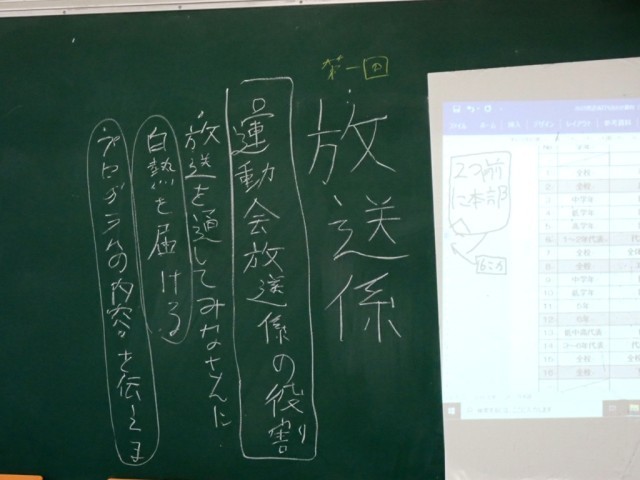 第一回
放送係
運動会放送係の役割り
放送を通してみなさんに
白熱を届ける
プログラムの内容を伝える
2つ前
に本部
ファイル ホーム 挿入 デザイン レイアウト 参考資料
1 全校
2 全校
3 中学年
4 低学年
5 高学年
6 1〜2年代表
7 全校
8 全校
9 中学年
10 低学年
11 5年
12 6年
13 低中高代表
14 3〜6年代表
15 全校
16 全校